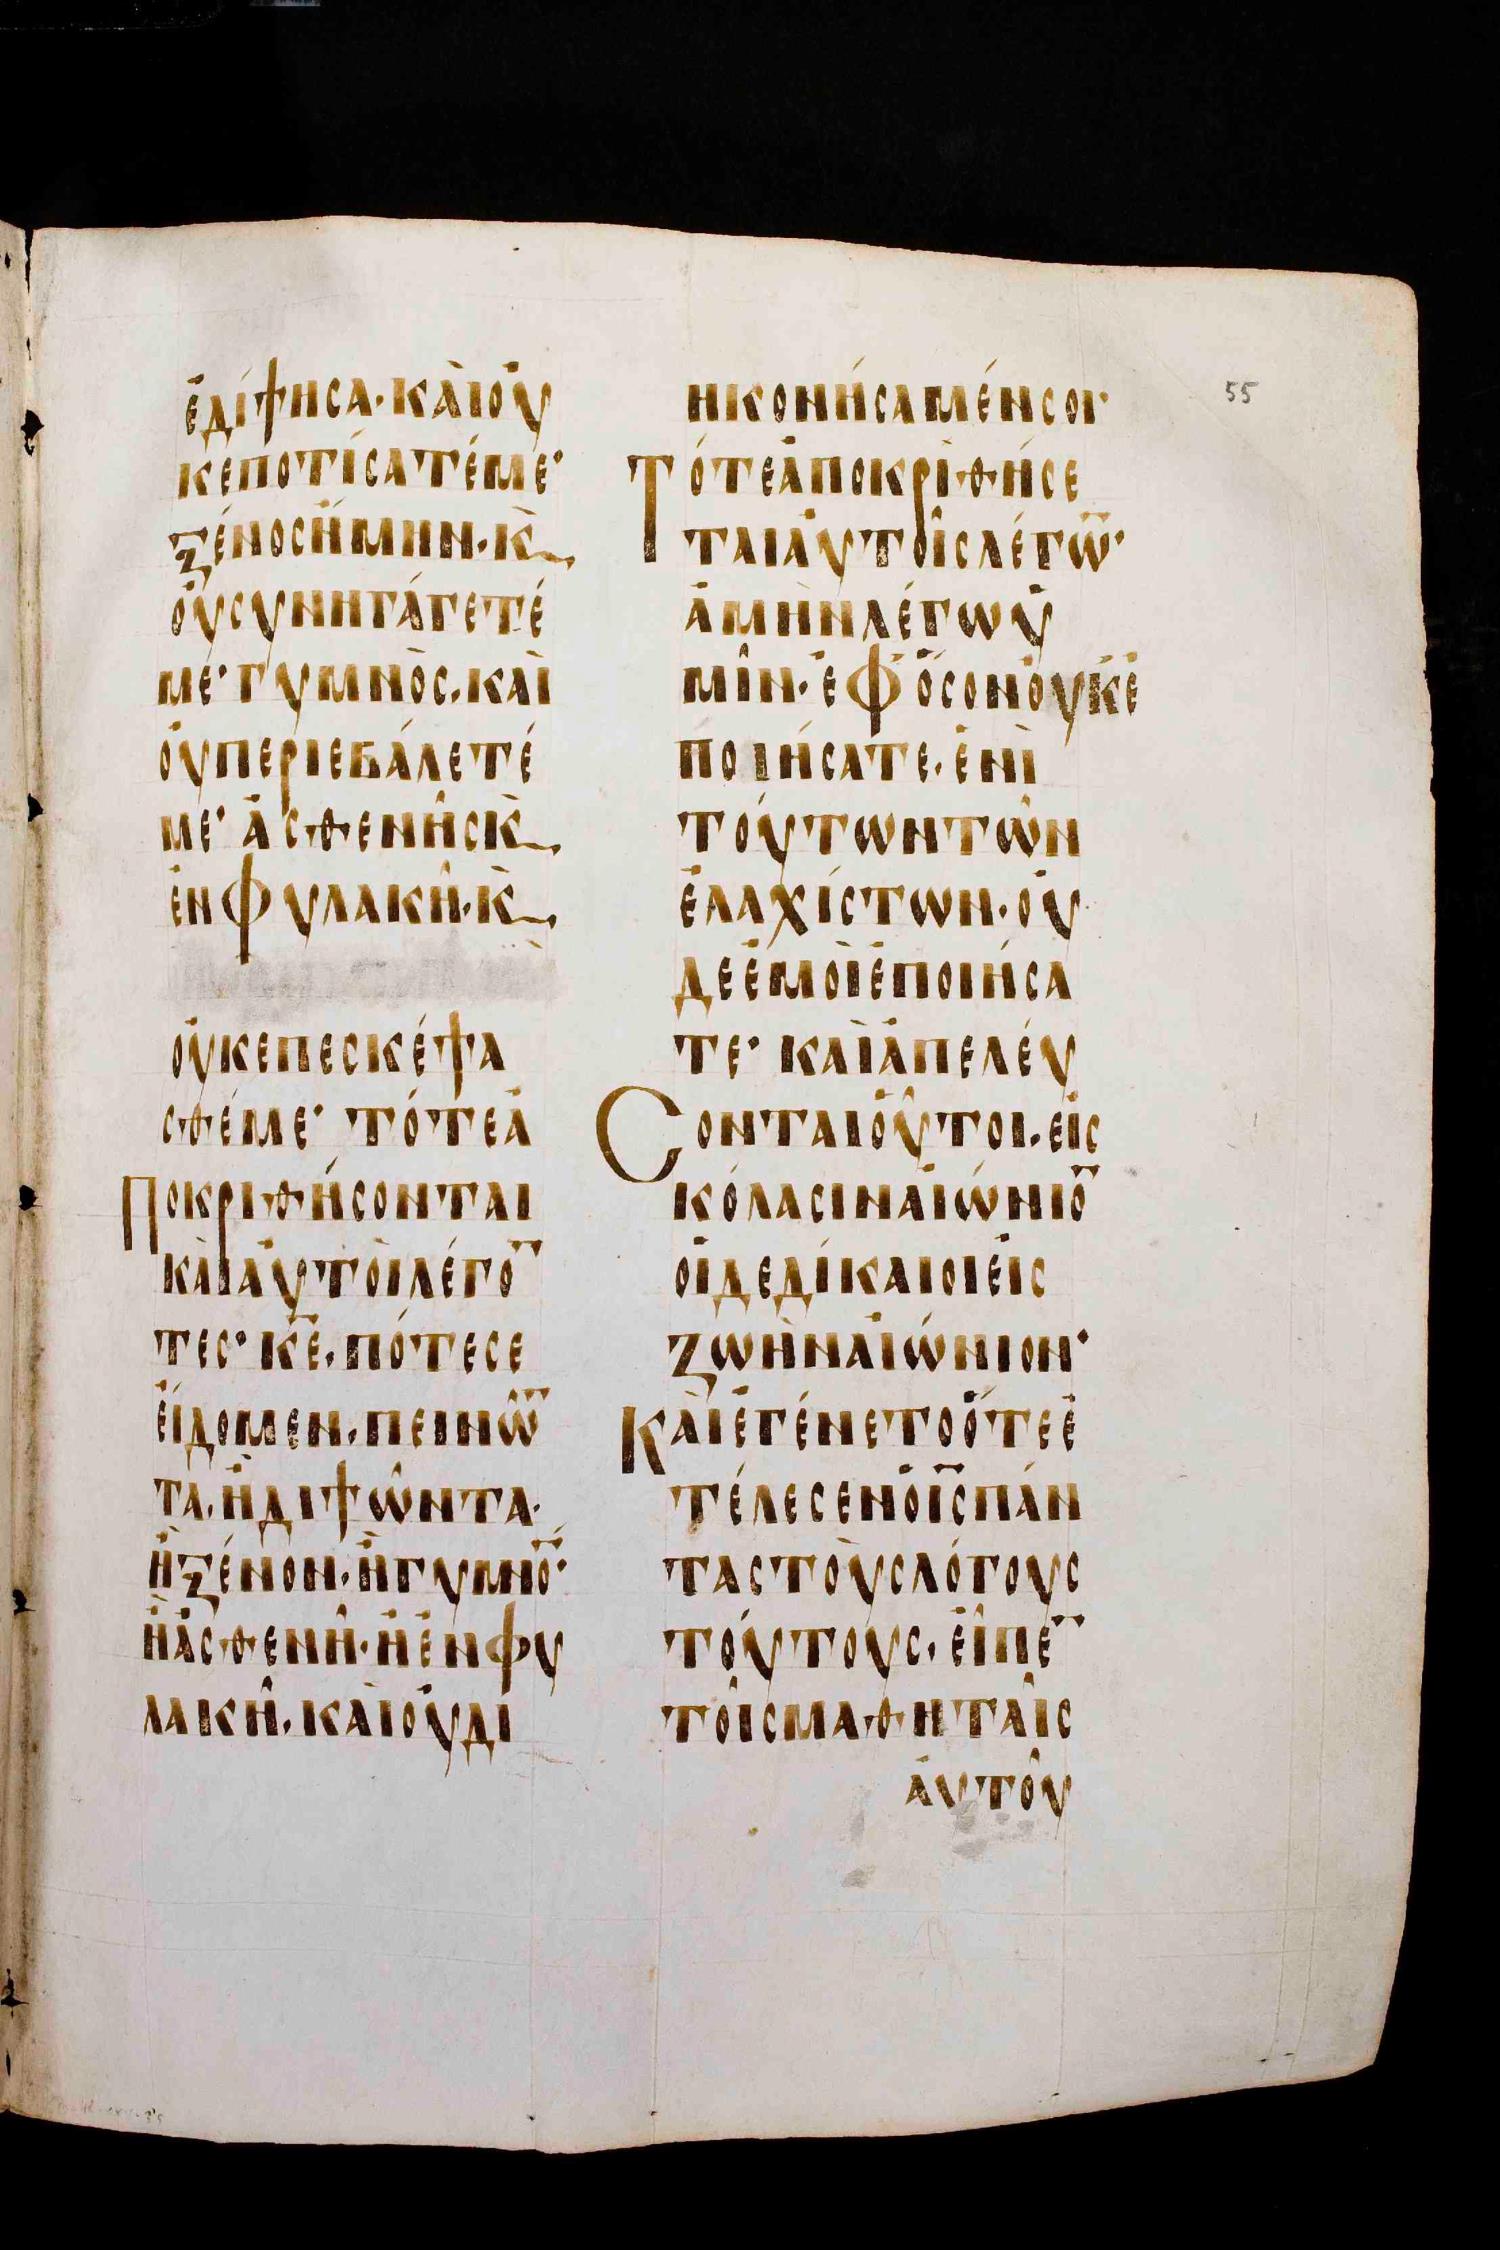 ἐδίψησα· καὶ οὐ
κεποτίσατέ με·
ξένος ἤμην· κ̀
οὐ συνηγάγετέ
με· γυμνὸς· καὶ
οὐ περιεβάλετέ
με· ἀσθενὴς κ̀
ἐν φυλακῆ· κ̀
οὐκ επεσκέψα
σθέ με· τότε ἀ
ποκριθήσονται
καὶ αὐτοὶ λέγο̅
τες· κ̅ε̅· πότε σε
εἴδομεν· πεινῶ̅
τα· ἢ διψῶντα·
ἢ ξένον· ἢ γυμνὸ̅·
ἢ ἀσθενῆ· ἢ ἐν φυ
λακῆ· καὶ οὐ δι
ηκονήσαμέν σοι·
Τότε ἀποκριθήσε
ται αὐτοῖς λέγω̅·
ἀμὴν λέγω ὑ
μῖν· ἐφ ὅσον οὐκ ἐ
ποιήσατε· ἑνὶ
τούτων τῶν
ἐλαχίστων· οὐ
δε ἐμοὶ ἐποιήσα
τε· καὶ ἀπελεύ
Σονται οὗτοι· εἰς
κόλασιν αἰώνιο̅
οἱ δε δίκαιοι εἰς
ζωὴν αἰώνιον·
Καὶ ἐγένετο ὅτε ἐ
τέλεσεν ὁ ι̅ς̅ πάν
τας τοὺς λόγους
τούτους· εἶπε̅
τοῖς μαθηταῖς
αὐτοῦ
55